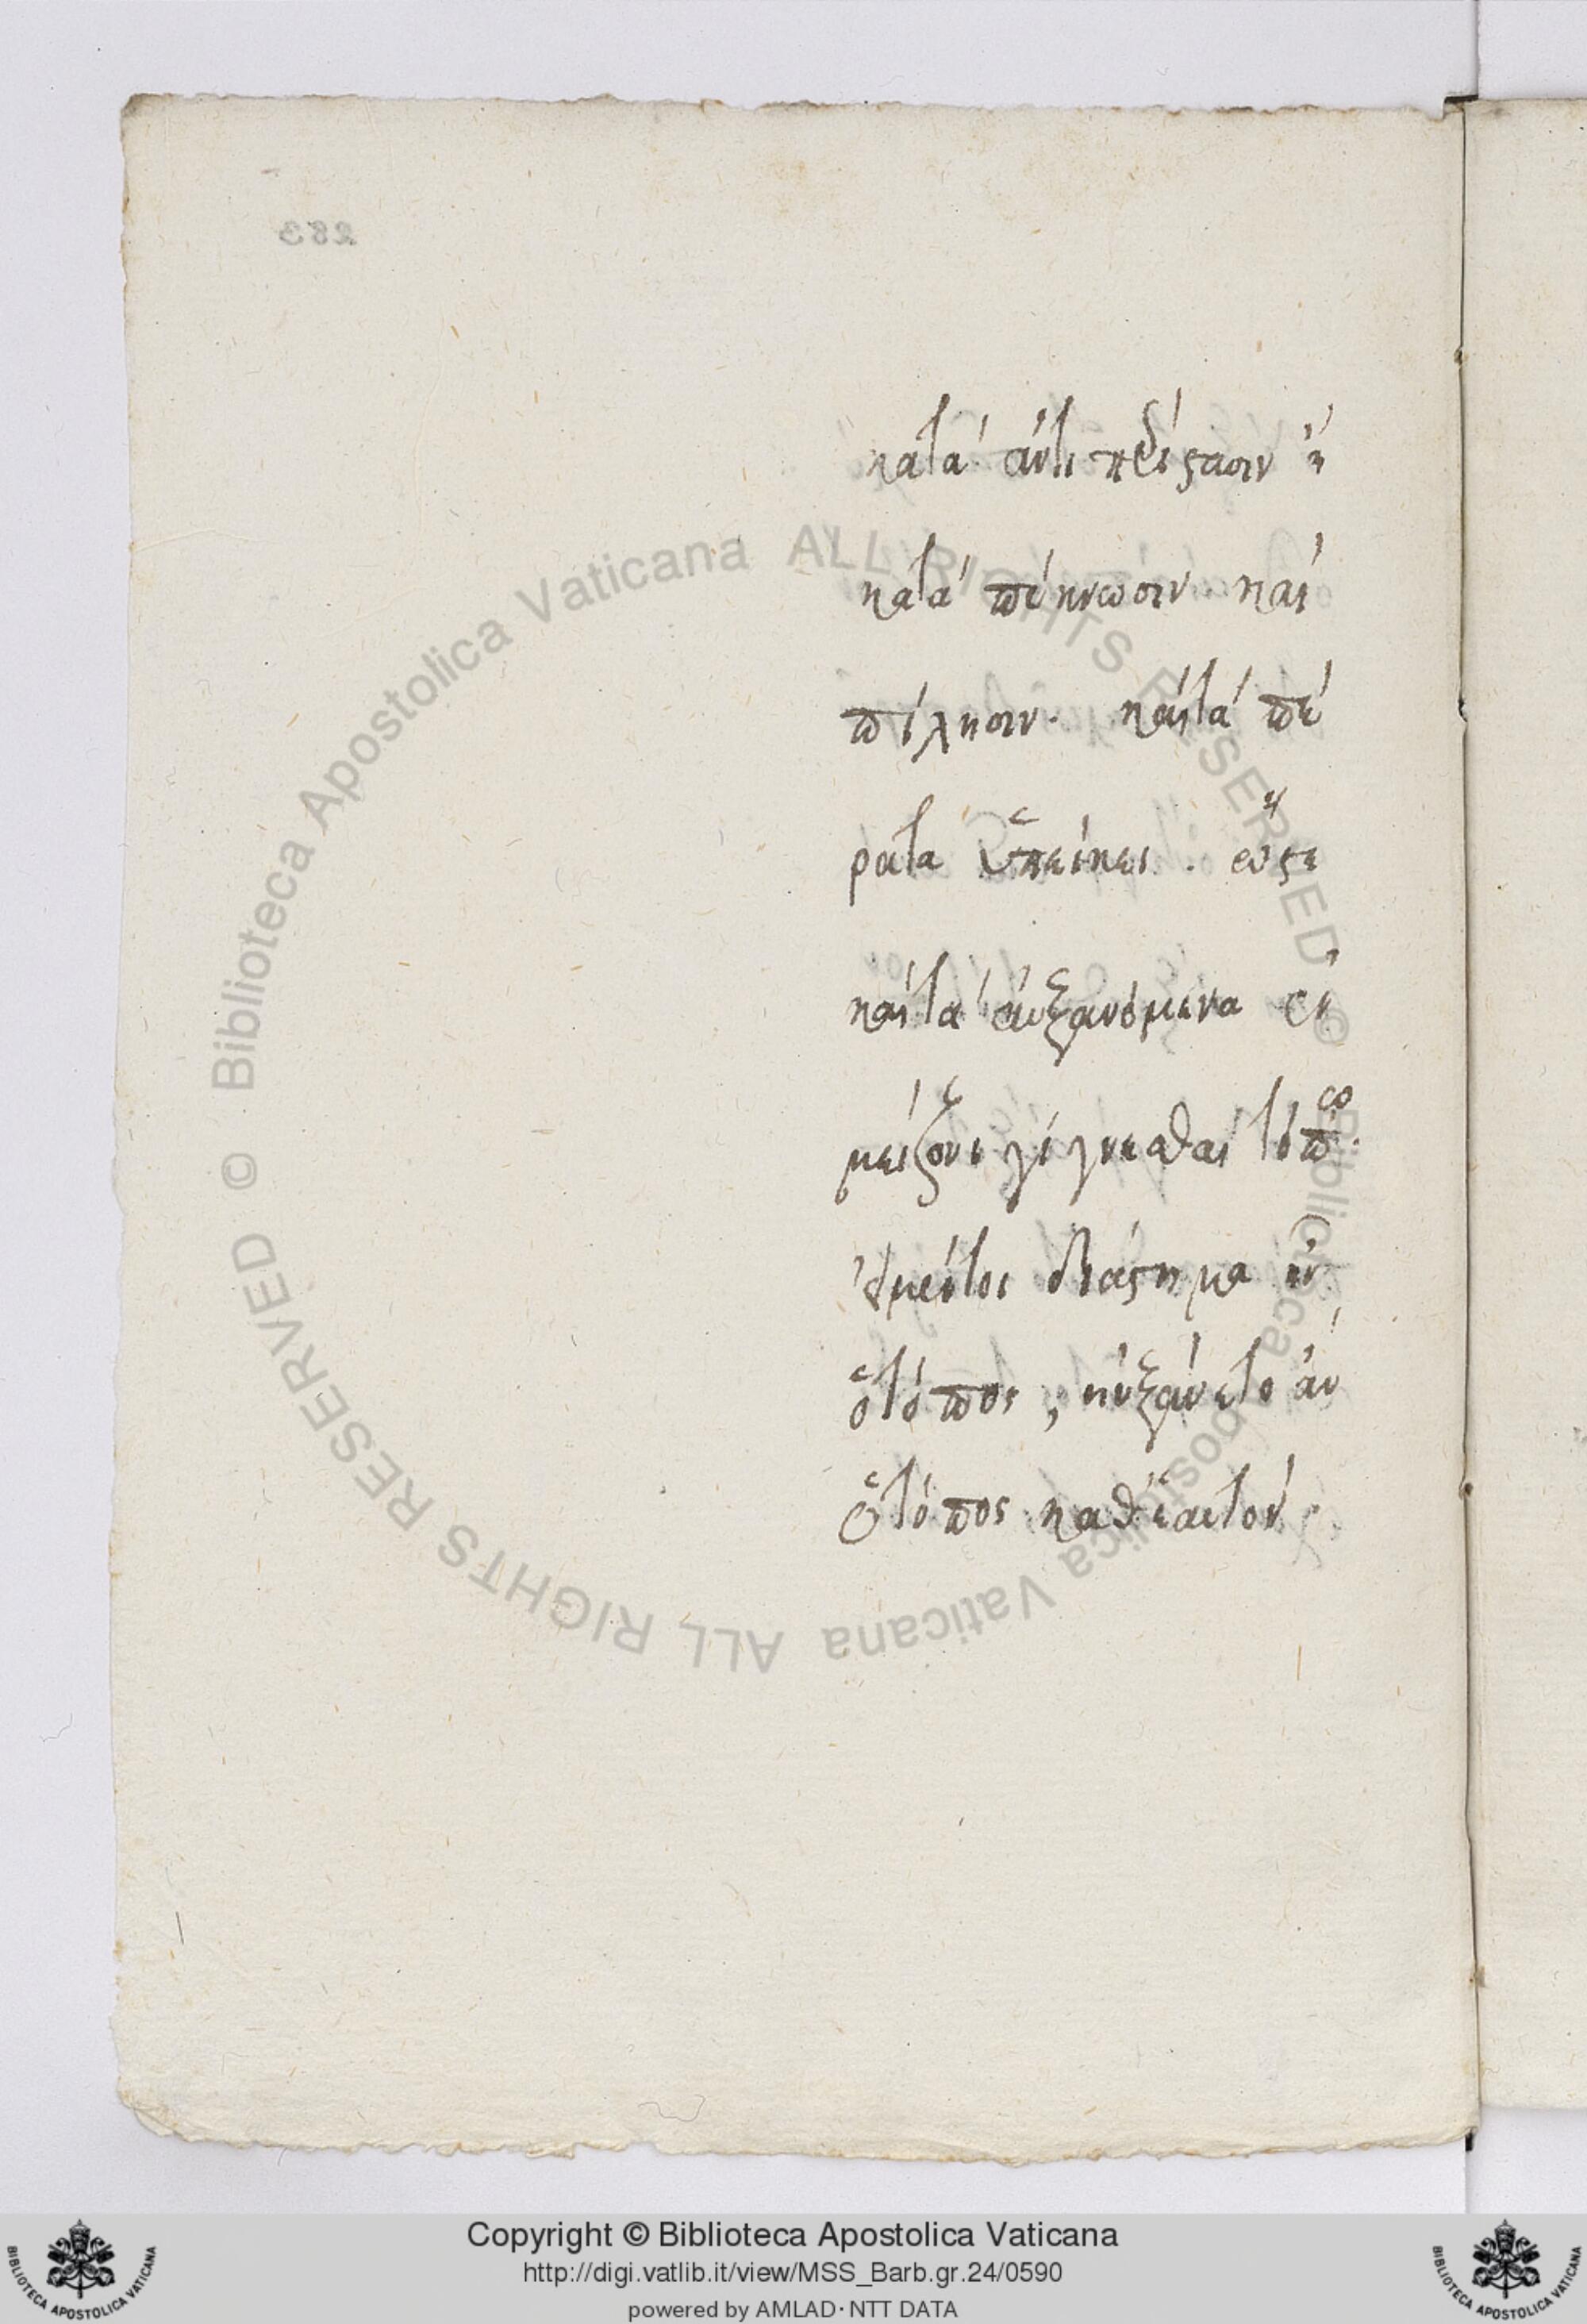 κατὰ ἀντιπερίστασιν ἢ
κατὰ πύκνωσιν καὶ
πίλησιν. καὶ τὰ πέ
ρατα ὑπείκει. ὥστε
καὶ τὰ αὐξανόμενα ἐν
μείζονι γίγνεσθαι τόπῳ.
εἰ μέντοι διάστημα ἦν
ὁ τόπος, ηὐξάνετο ἂν
ὁ τόπος καθ' ἑαυτόν.
283
© Biblioteca Apostolica Vaticana ALL RIGHTS RESERVED © Biblioteca Apostolica Vaticana ALL RIGHTS RESERVED
Copyright © Biblioteca Apostolica Vaticana
http://digi.vatlib.it/view/MSS_Barb.gr.24/0590
powered by AMLAD · NTT DATA
BIBLIOTECA APOSTOLICA VATICANA
BIBLIOTECA APOSTOLICA VATICANA